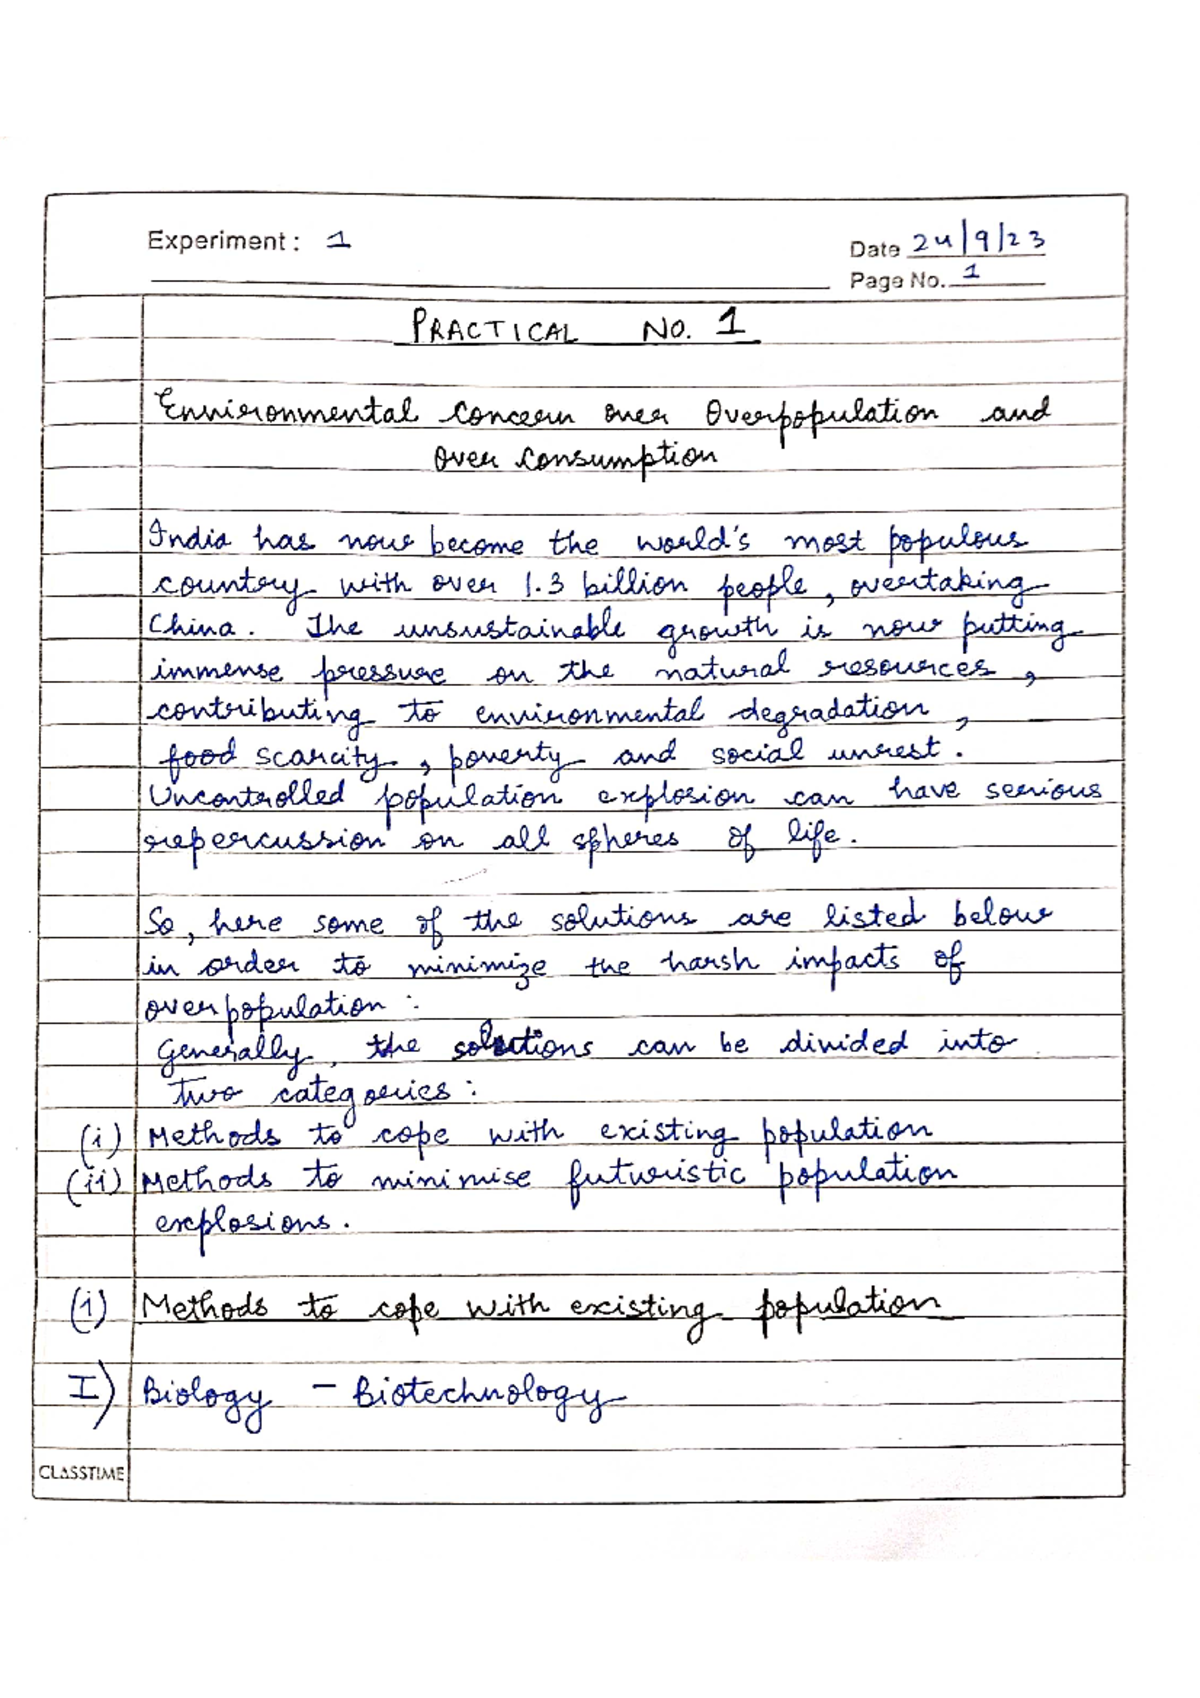 Experiment : 1
Date 24/9/23
Page No. 1
PRACTICAL NO. 1
Environmental Concern over Overpopulation and
Over Consumption
India has now become the world's most populous
country with over 1.3 billion people, overtaking
China. The unsustainable growth is now putting
immense pressure on the natural resources,
contributing to environmental degradation,
food scarcity, poverty and social unrest.
Uncontrolled population explosion can have serious
repercussion on all spheres of life.
So, here some of the solutions are listed below
in order to minimize the harsh impacts of
overpopulation :
Generally, the solutions can be divided into
two categories :
(i) Methods to cope with existing population
(ii) Methods to minimise futuristic population
explosions.
(i) Methods to cope with existing population
I) Biology - Biotechnology
CLASSTIME